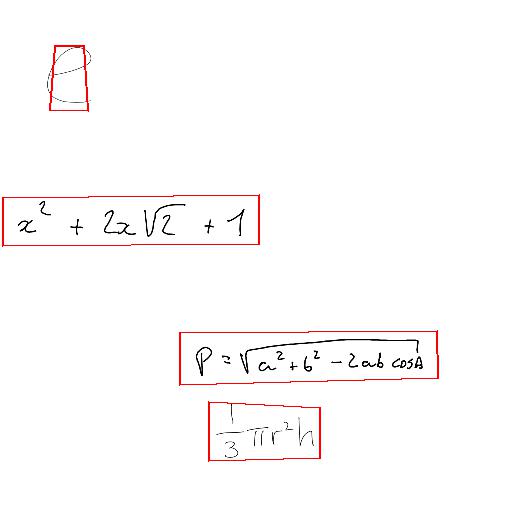 e
x² + 2x√2 + 1
P = √(a² + b² - 2ab cosA)
1/3 πr²h